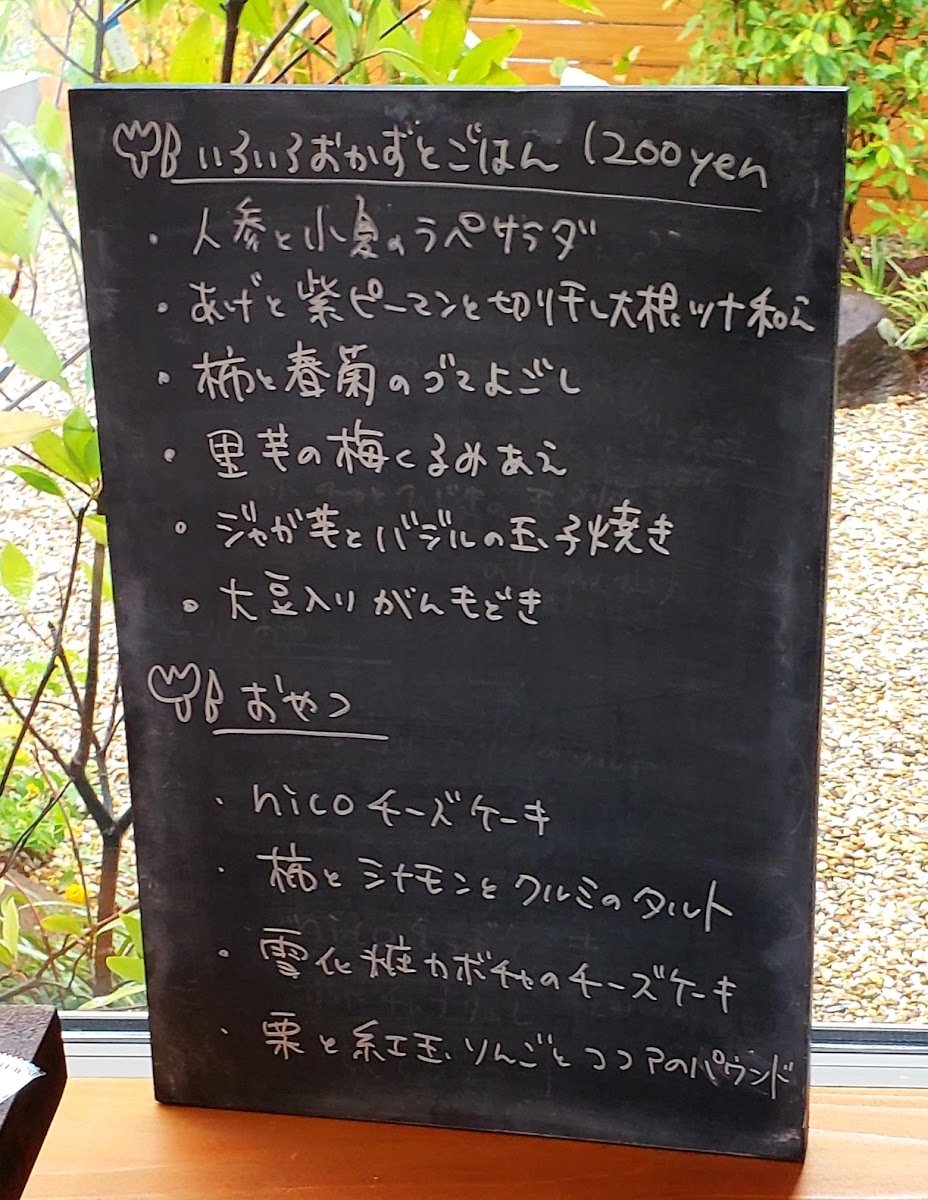 いろいろおかずとごはん 1200yen
・人参と小夏のラペサラダ
・あげと紫ピーマンと切り干し大根ツナ和え
・柿と春菊のごまよごし
・里芋の梅くるみあえ
・ジャガ芋とバジルの玉子焼き
・大豆入りがんもどき
おやつ
・nicoチーズケーキ
・柿とシナモンとクルミのタルト
・雪化粧カボチャのチーズケーキ
・栗と紅玉りんごとココアのパウンド